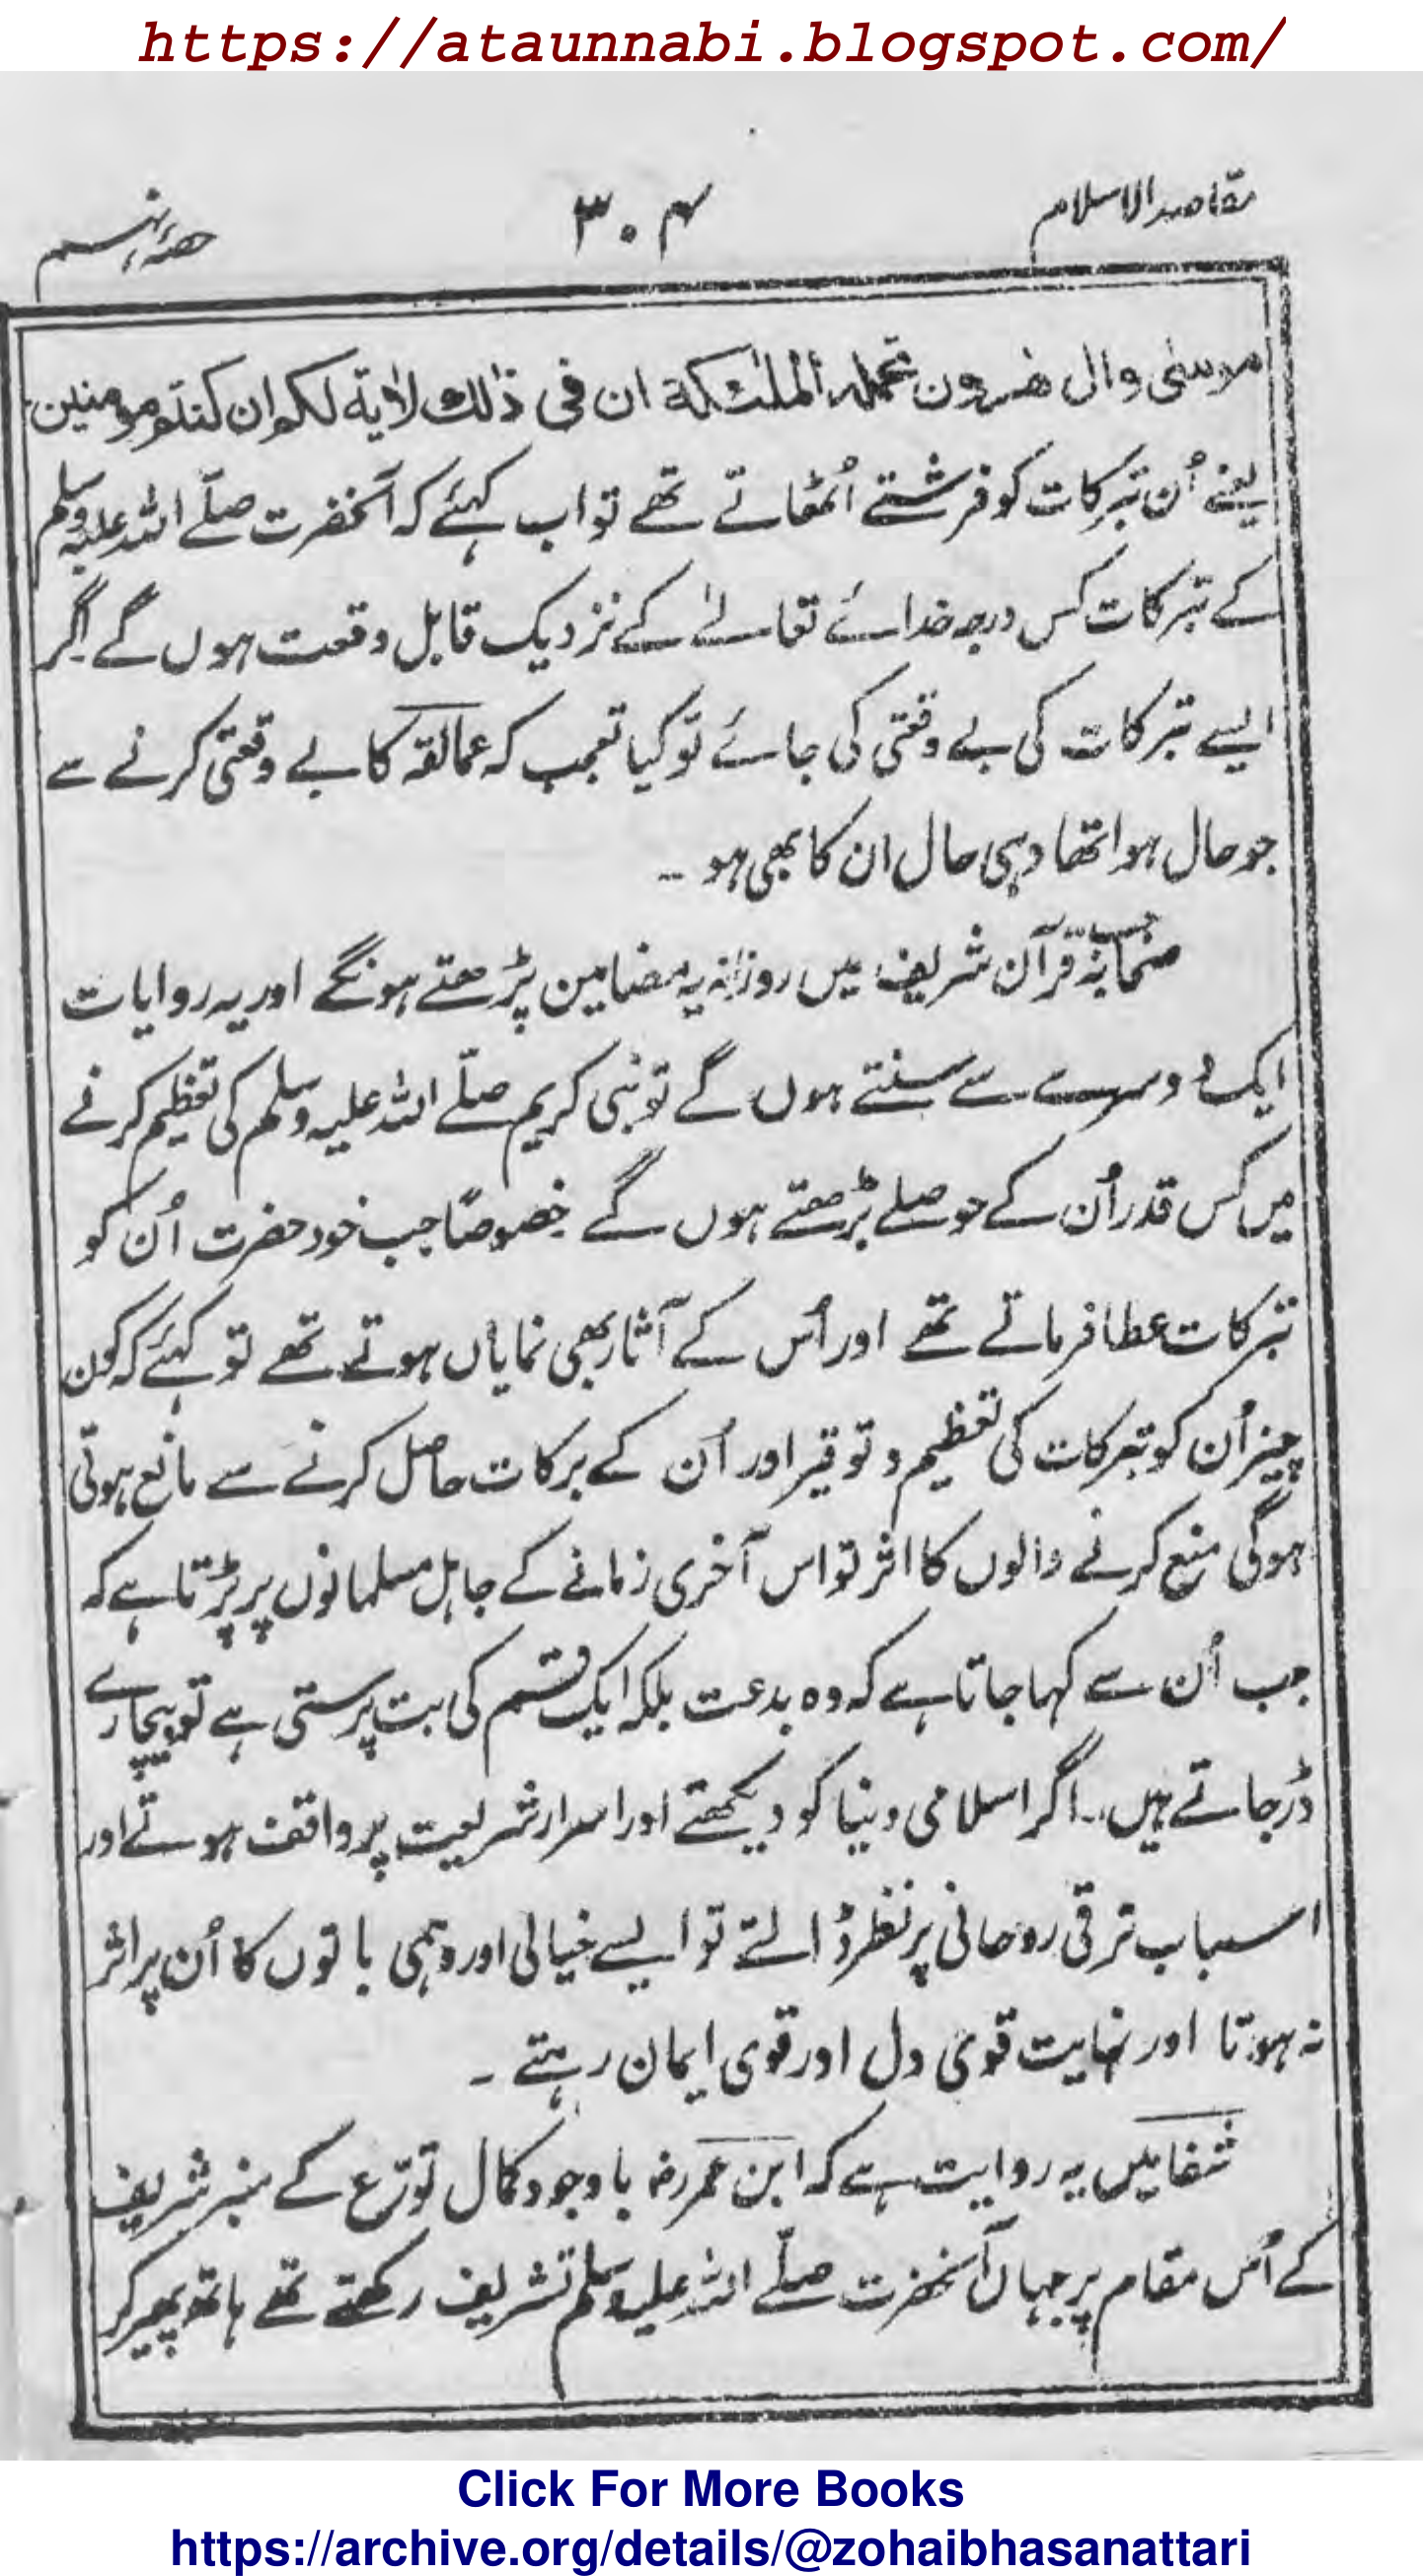 https://ataunnabi.blogspot.com/
مقاصد الاسلام
۳۰۴
حصۂ نہم
موسٰی وال ھٰرون تحملہ الملٰئکة ان فی ذٰلك لاٰیة لکم ان کنتم مومنین
یعنے اُن تبرکات کو فرشتے اُٹھاتے تھے تو اب کہئے کہ آنحضرت صلّے اللہ علیہ وسلم
کے تبرکات کس درجہ خدائے تعالےٰ کے نزدیک قابل وقعت ہوں گے اگر
ایسے تبرکات کی بے وقعتی کی جائے تو کیا تعجب کہ عمالقہ کا بے وقعتی کرنے سے
جو حال ہوا تھا وہی حال ان کا بھی ہو ۔
صحابہ قرآن شریف میں روزانہ یہ مضامین پڑھتے ہونگے اور یہ روایات
ایک دوسرے سے سنتے ہوں گے تو نبی کریم صلّے اللہ علیہ وسلم کی تعظیم کرنے
میں کس قدر اُن کے حوصلے بڑھتے ہوں گے خصوصًا جب خود حضرت اُن کو
تبرکات عطا فرماتے تھے اور اُس کے آثار بھی نمایاں ہوتے تھے تو کہئے کہ کون
چیز اُن کو تبرکات کی تعظیم و توقیر اور اُن کے برکات حاصل کرنے سے مانع ہوتی
ہوگی منع کرنے والوں کا اثر تو اس آخری زمانے کے جاہل مسلمانوں پر پڑتا ہے کہ
جب اُن سے کہا جاتا ہے کہ وہ بدعت بلکہ ایک قسم کی بت پرستی ہے تو بیچارے
ڈر جاتے ہیں۔ اگر اسلامی دنیا کو دیکھتے اور اسرار شریعت پر واقف ہوتے اور
اسباب ترقی روحانی پر نظر ڈالتے تو ایسے خیالی اور وہمی باتوں کا اُن پر اثر
نہ ہوتا اور نہایت قوی دل اور قوی ایمان رہتے ۔
شفا میں یہ روایت ہے کہ ابن عمر رضہ باوجود کمال تورّع کے منبر شریف
کے اُس مقام پر جہاں آنحضرت صلّے اللہ علیہ وسلم تشریف رکھتے تھے ہاتھ پھیر کر
Click For More Books
https://archive.org/details/@zohaibhasanattari